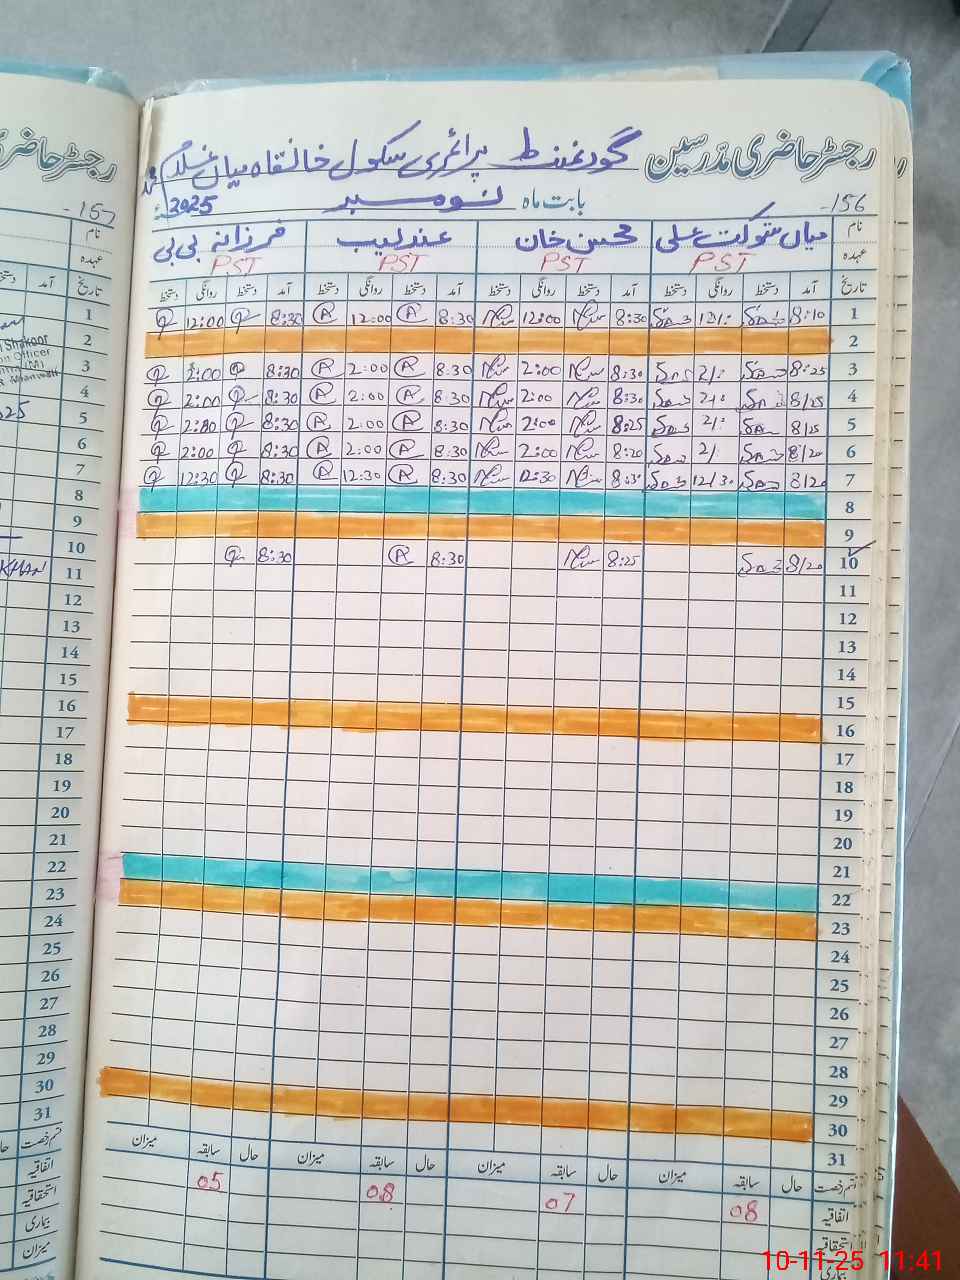 رجسٹر حاضری مدرسین گورنمنٹ پرائمری سکول خانقاہ میاں غلام محمد
156 بابت ماہ نومبر 2025ء
نام میاں شوکت علی محسن خان عندلیب فرزانہ بی بی
عہدہ PST PST PST PST
تاریخ آمد دستخط روانگی دستخط آمد دستخط روانگی دستخط آمد دستخط روانگی دستخط آمد دستخط روانگی دستخط
1 8:10 12/: 8:30 12:00 8:30 A 12:00 A 8:30 12:00
2
3 8:25 2/: 8:30 2:00 8:30 A 2:00 A 8:30 2:00
4 8/25 2/: 8:30 2:00 8:30 A 2:00 A 8:30 2:00
5 8/25 2/: 8:25 2:00 8:30 A 2:00 A 8:30 2:00
6 8/20 2/: 8:20 2:00 8:30 A 2:00 A 8:30 2:00
7 8/20 12/30 8:30 12:30 8:30 A 12:30 A 8:30 12:30
8
9
10 8/20 8:25 8:30 A 8:30
11
12
13
14
15
16
17
18
19
20
21
22
23
24
25
26
27
28
29
30
31
قسم رخصت حال سابقہ میزان حال سابقہ میزان حال سابقہ میزان حال سابقہ میزان
اتفاقیہ 08 07 08 05
استحقاقیہ
بیماری
رجسٹر حاضری
157
نام
عہدہ
تاریخ آمد دستخط
1
2
3
4
5
6
7
8
9
10
11 KHAN
12
13
14
15
16
17
18
19
20
21
22
23
24
25
26
27
28
29
30
31
قسم رخصت حال
اتفاقیہ
استحقاقیہ
بیماری
میزان
10-11-25 11:41